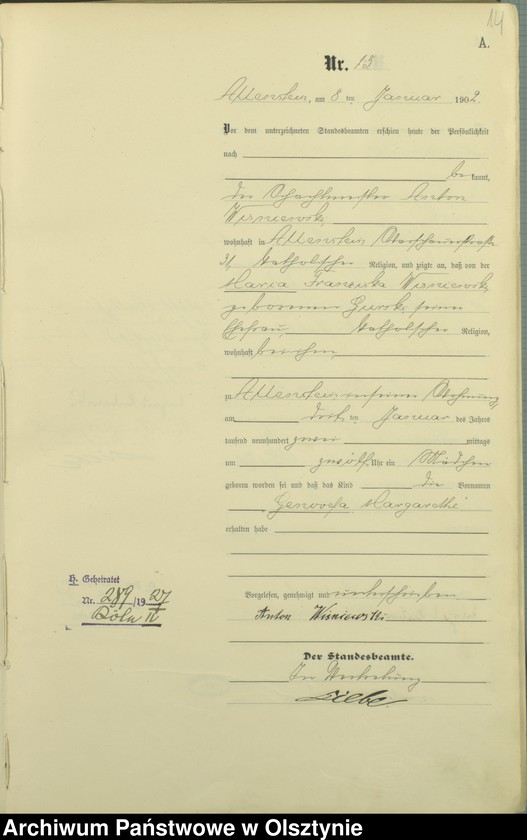 14
A.
Nr. 15
Allenstein, am 8 ten Januar 1902.
Vor dem unterzeichneten Standesbeamten erschien heute der Persönlichkeit
nach
be kannt,
der Schachtmeister Anton
Wisniewski
wohnhaft in Allenstein
31, katholischer Religion, und zeigte an, daß von der
Maria Franziska Wisniewski,
geborenen Gurski, seine
Ehefrau, katholischer Religion,
wohnhaft bei ihm,
zu Allenstein in seiner Wohnung,
am ten Januar des Jahres
tausend neunhundert zwei mittags
um zwölf Uhr ein Mädchen
geboren worden sei und daß das Kind die Vornamen
Genovefa Margarethe
erhalten habe
H. Geheiratet
Nr. 289/1927
Köln II
Vorgelesen, genehmigt und unterschrieben
Anton Wisniewski
Der Standesbeamte.
In Vertretung
Archiwum Państwowe w Olsztynie